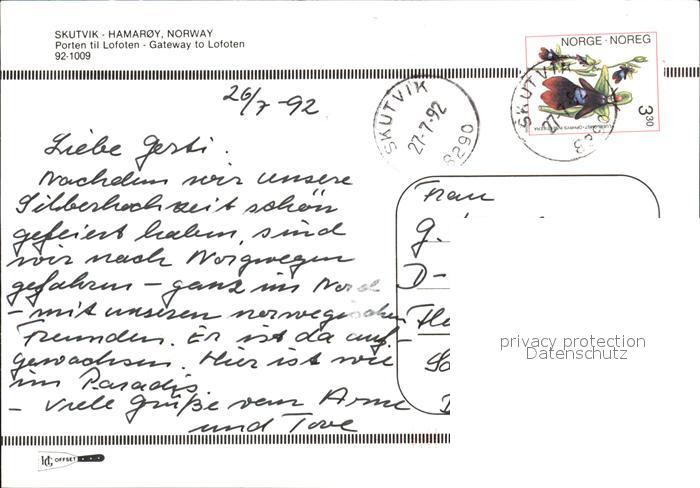 SKUTVIK - HAMARØY, NORWAY
Porten til Lofoten - Gateway to Lofoten
92-1009
NORGE · NOREG
3 30
SKUTVIK
27-7-92
8290
SKUTVIK
27-
26/7-92
Liebe Gerti.
Nachdem wir unsere
Silberhochzeit schön
gefeiert haben, sind
wir nach Norgwegen
gefahren - ganz im Nord
- mit unseren norwegischen
Freunden. Er ist da auf-
gewachsen. Hier ist wie
im Paradis.
- Viele Grüße vom Arne
und Tove
Frau
G.
D-
privacy protection
Datenschutz
OFFSET